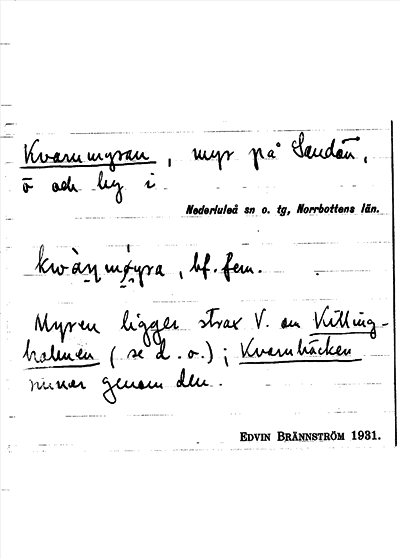 Kvarnmyran, myr på Sandön,
ö och by i
Nederluleå sn o. tg, Norrbottens län.
kwàṇmǿyra, bf. fem.
Myren ligger strax V. om Killing-
holmen (se d. o.); Kvarnbäcken
rinner genom den.
EDVIN BRÄNNSTRÖM 1931.